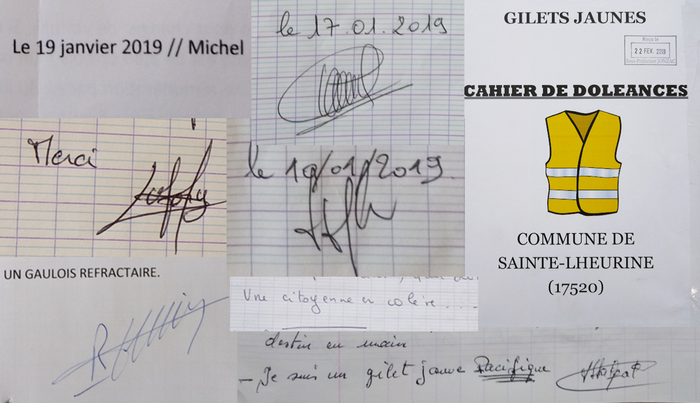 Le 19 janvier 2019 // Michel
le 17.01.2019
GILETS JAUNES
22 FEV. 2019
CAHIER DE DOLEANCES
COMMUNE DE
SAINTE-LHEURINE
(17520)
Merci
le 19/01/2019.
UN GAULOIS REFRACTAIRE.
Une citoyenne en colère....
destin en main
- Je suis un gilet jaune Pacifique